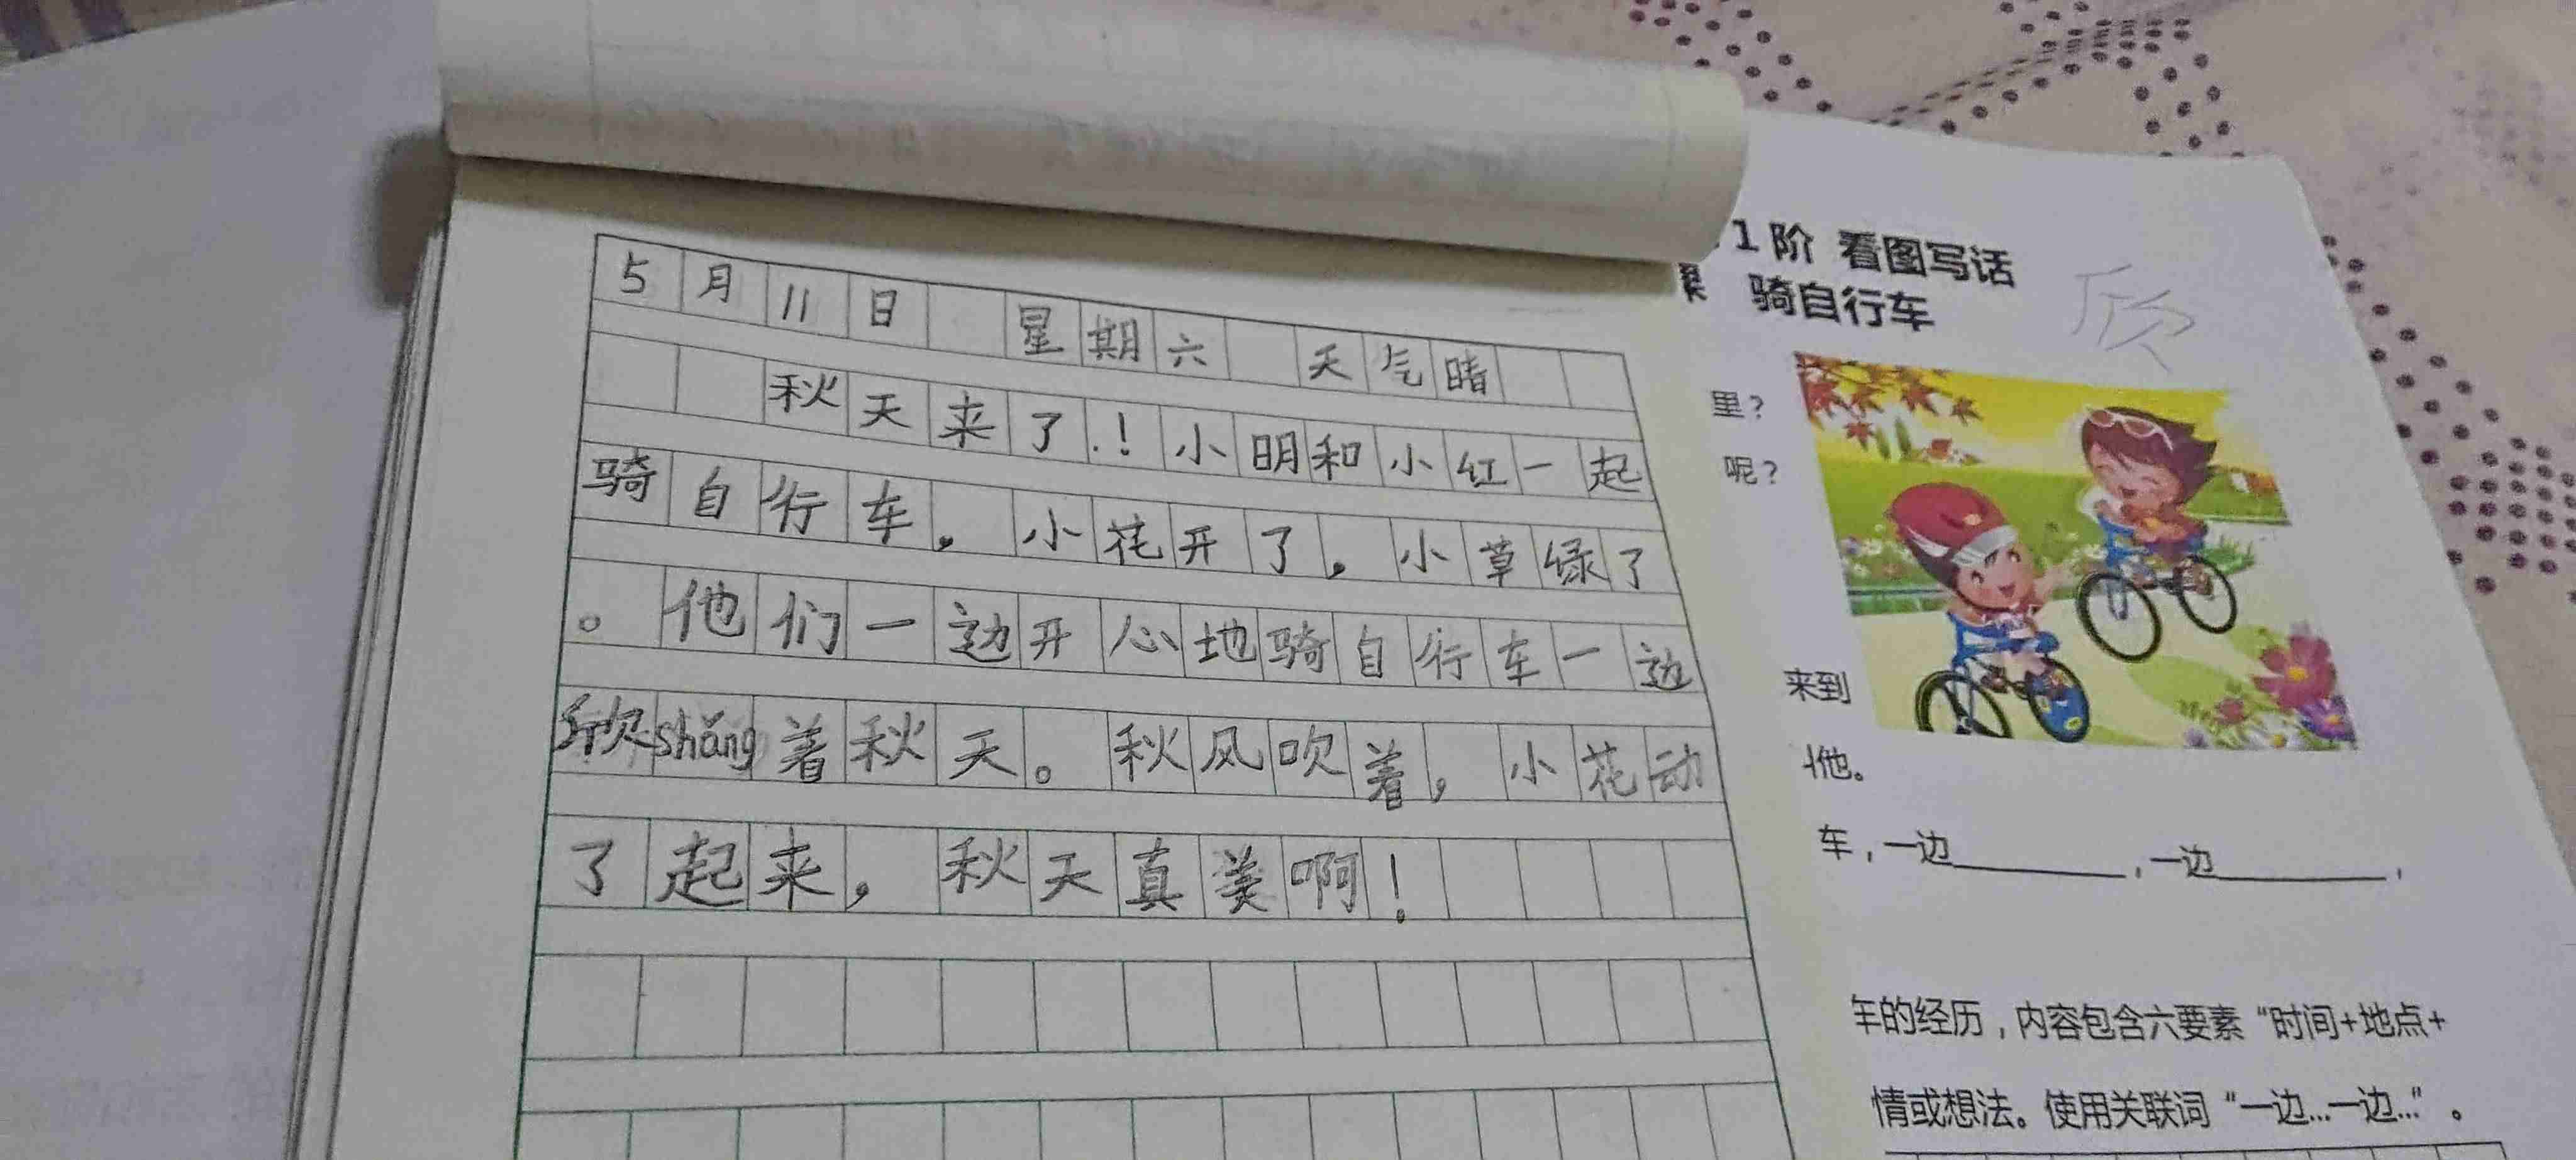 5月11日 星期六 天气晴
秋天来了.！小明和小红一起
骑自行车，小花开了，小草绿了
。他们一边开心地骑自行车一边
欣shǎng着秋天。秋风吹着，小花动
了起来，秋天真美啊！
1阶 看图写话
骑自行车
欣
里？
呢？
来到
他。
车，一边________，一边________，
年的经历，内容包含六要素“时间+地点+
情或想法。使用关联词“一边...一边...”。